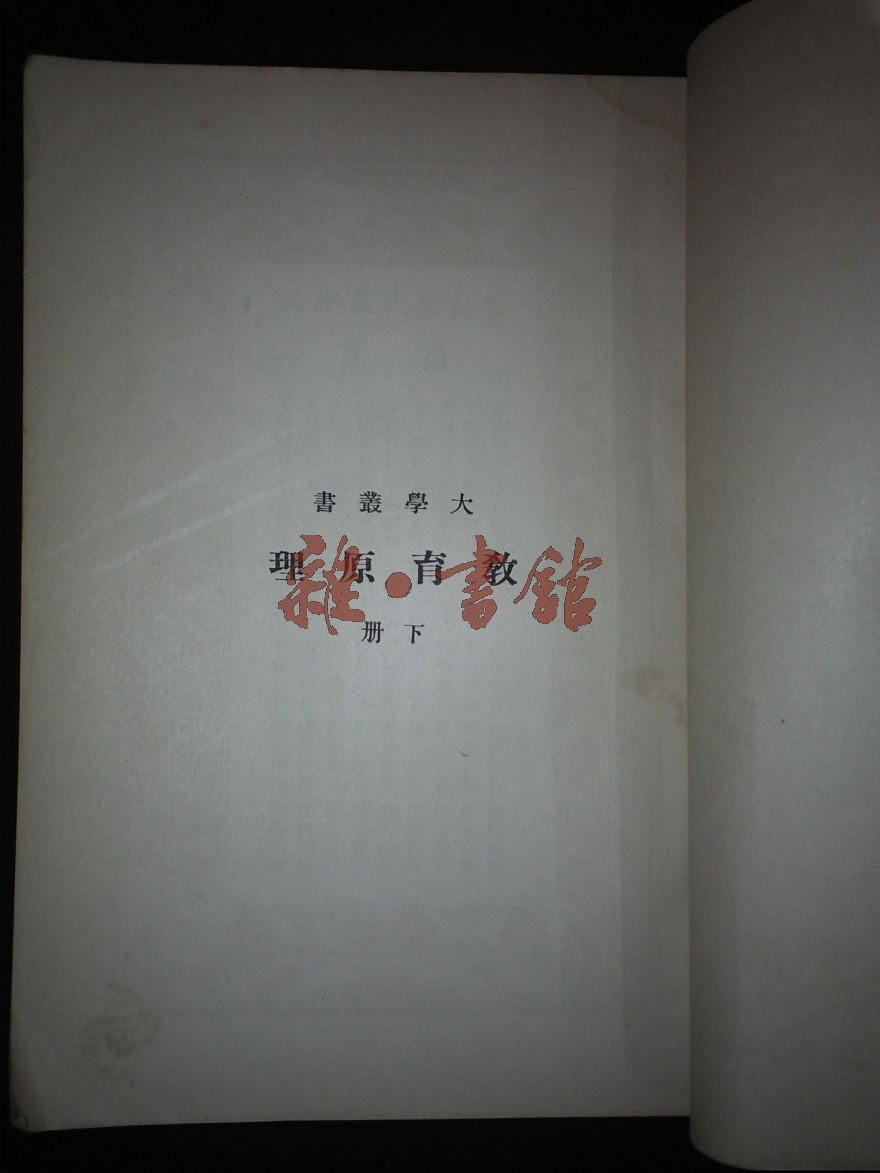 大學叢書
教育原理
雜·書館
下册